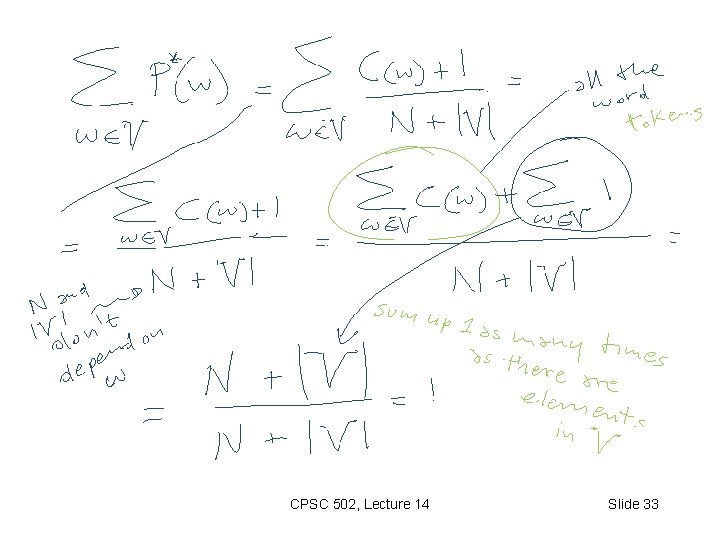 ∑_{w∈V} P*(w) = ∑_{w∈V} (C(w)+1)/(N+|V|) =
all the
word
tokens
= (∑_{w∈V} C(w)+1)/(N+|V|) = (∑_{w∈V} C(w) + ∑_{w∈V} 1)/(N+|V|) =
N and
|V|
don't
depend on
w
sum up 1 as many times
as there are
elements
in V
= (N+|V|)/(N+|V|) = 1
CPSC 502, Lecture 14
Slide 33